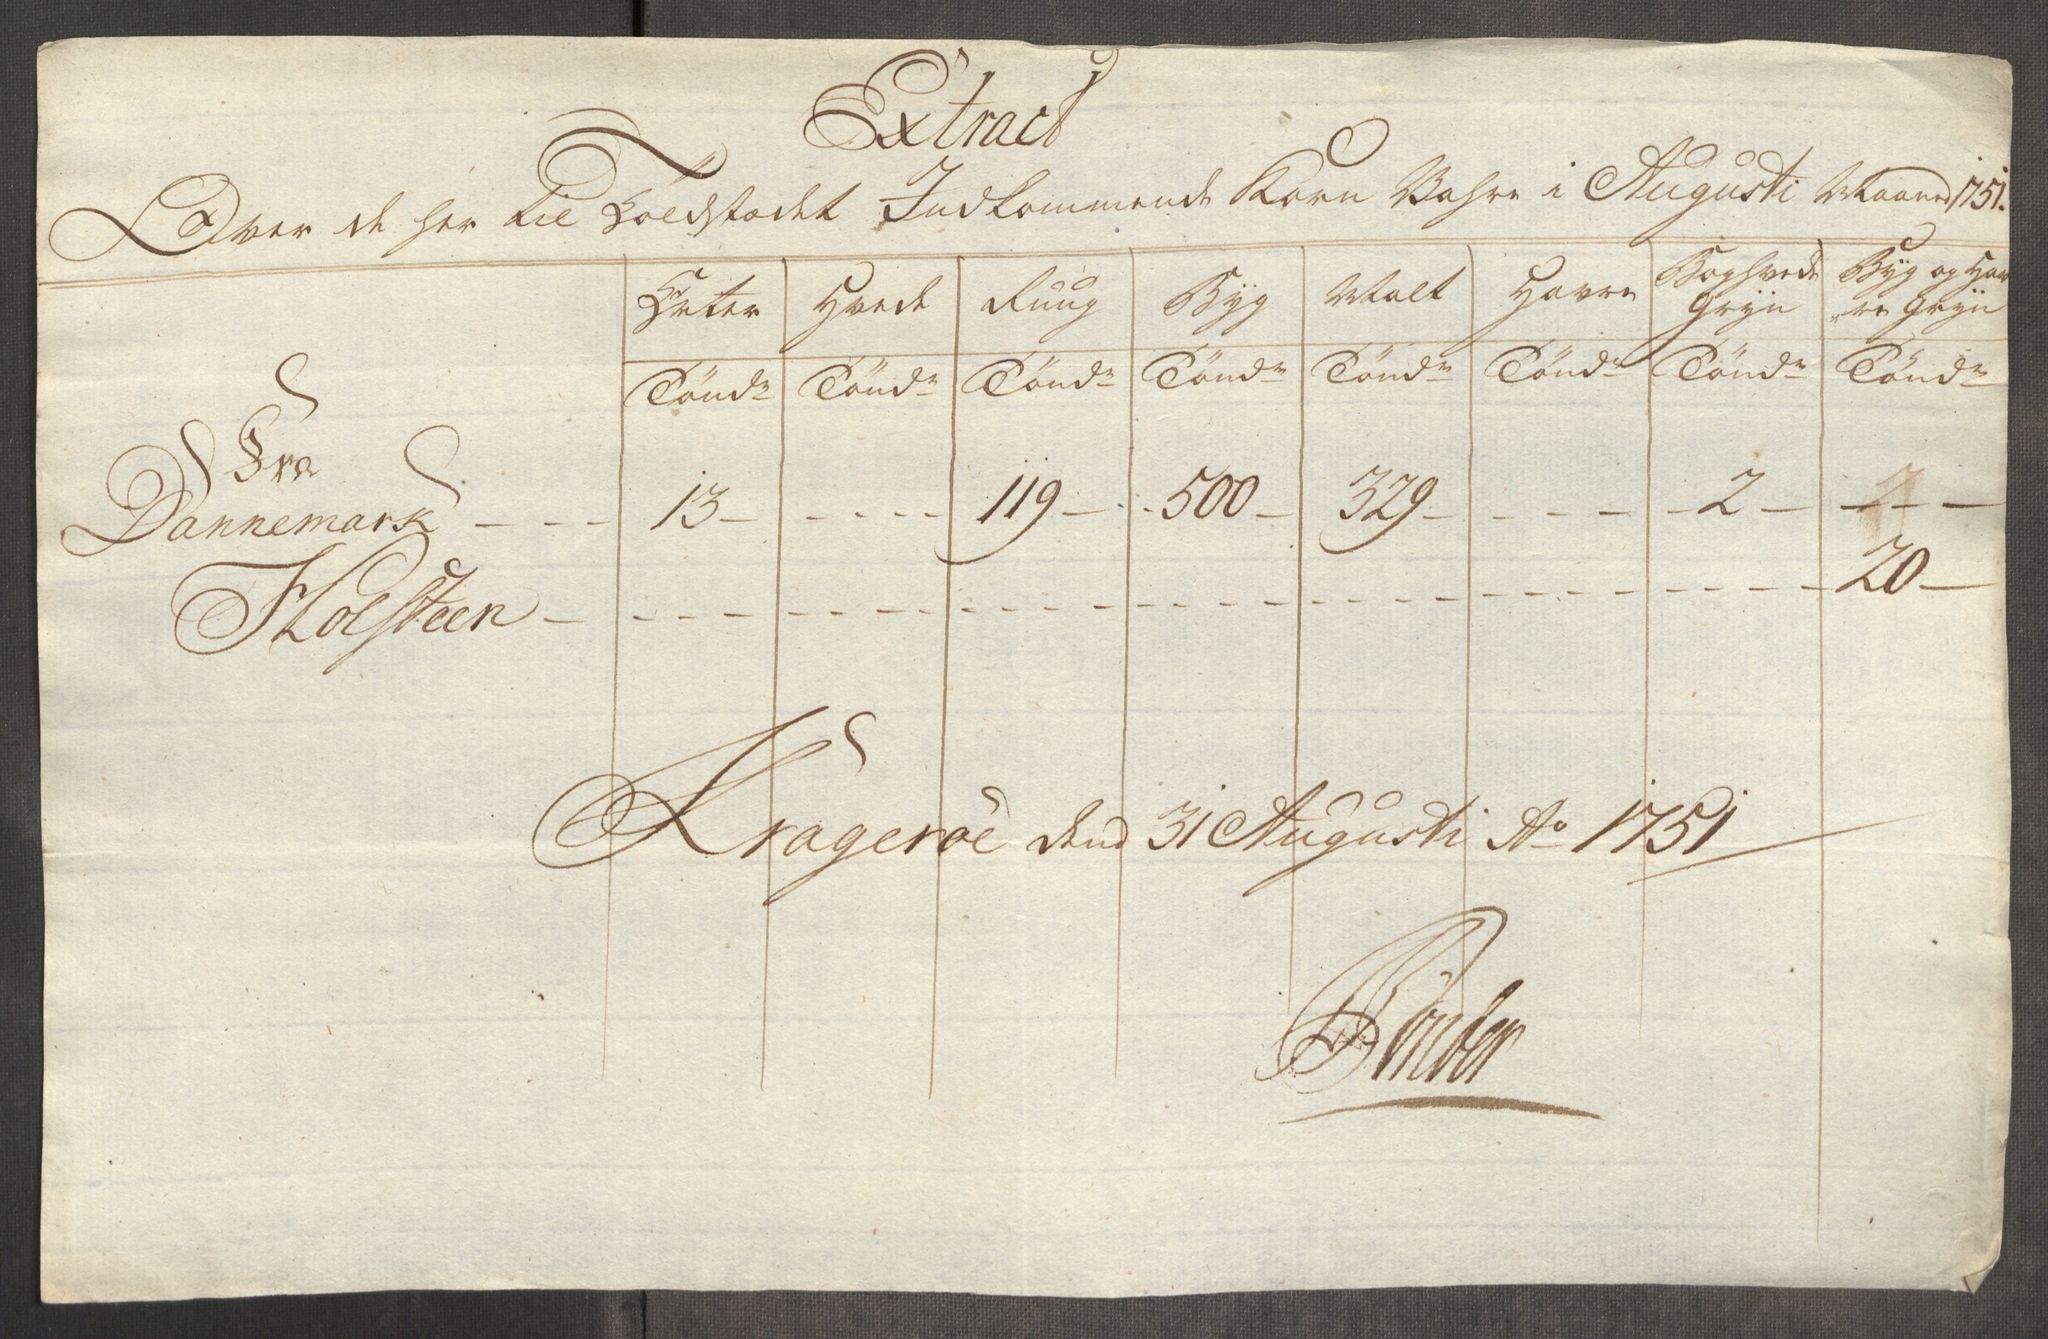 Extract
Over de her til Toldstædet Indkommende Korn Vahre i Augusti Maaned 1751.
Erter Hvede Ruug Byg Malt Havre Boghvede Gryn Byg og Havre Gryn
Tönd{r} Tönd{r} Tönd{r} Tönd{r} Tönd{r} Tönd{r} Tönd{r} Tönd{r}
Fra
Dannemark - - - 13 - - - - - 119 - - - 500 - 329 - - - - - - 2 - - - -
Holsteen - - - - - - - - - - - - - - - - - - - - - - - - 20 -
Krageröe dend 31 Augusti Ao 1751